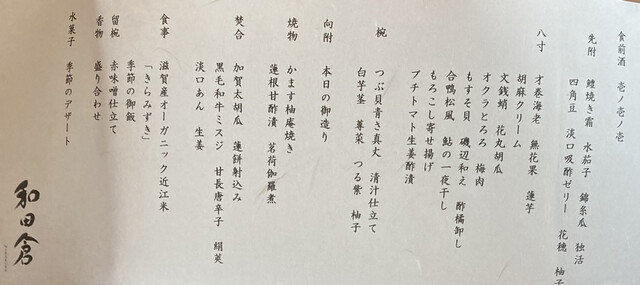 食前酒 壱ノ壱ノ壱
先附 鱧焼き霜 水茄子 錦糸瓜 独活
四角豆 淡口吸酢ゼリー 花穂 柚子
八寸 才巻海老 無花果 蓮芋
胡麻クリーム
文銭蛸 花丸胡瓜
オクラとろろ 梅肉
もずそ貝 磯辺和え 酢橘卸し
合鴨松風 鮎の一夜干し
もろこし寄せ揚げ
プチトマト生姜酢漬
椀 つぶ貝青さ真丈 清汁仕立て
白芋茎 蓴菜 つる紫 柚子
向附 本日の御造り
焼物 かます柚庵焼き
蓮根甘酢漬 茗荷伽羅煮
焚合 加賀太胡瓜 蓮餅射込み
黒毛和牛ミスジ 甘長唐辛子 絹莢
淡口あん 生姜
食事 滋賀産オーガニック近江米
「きらみずき」
季節の御飯
留椀 赤味噌仕立て
香物 盛り合わせ
水菓子 季節のデザート
和田倉